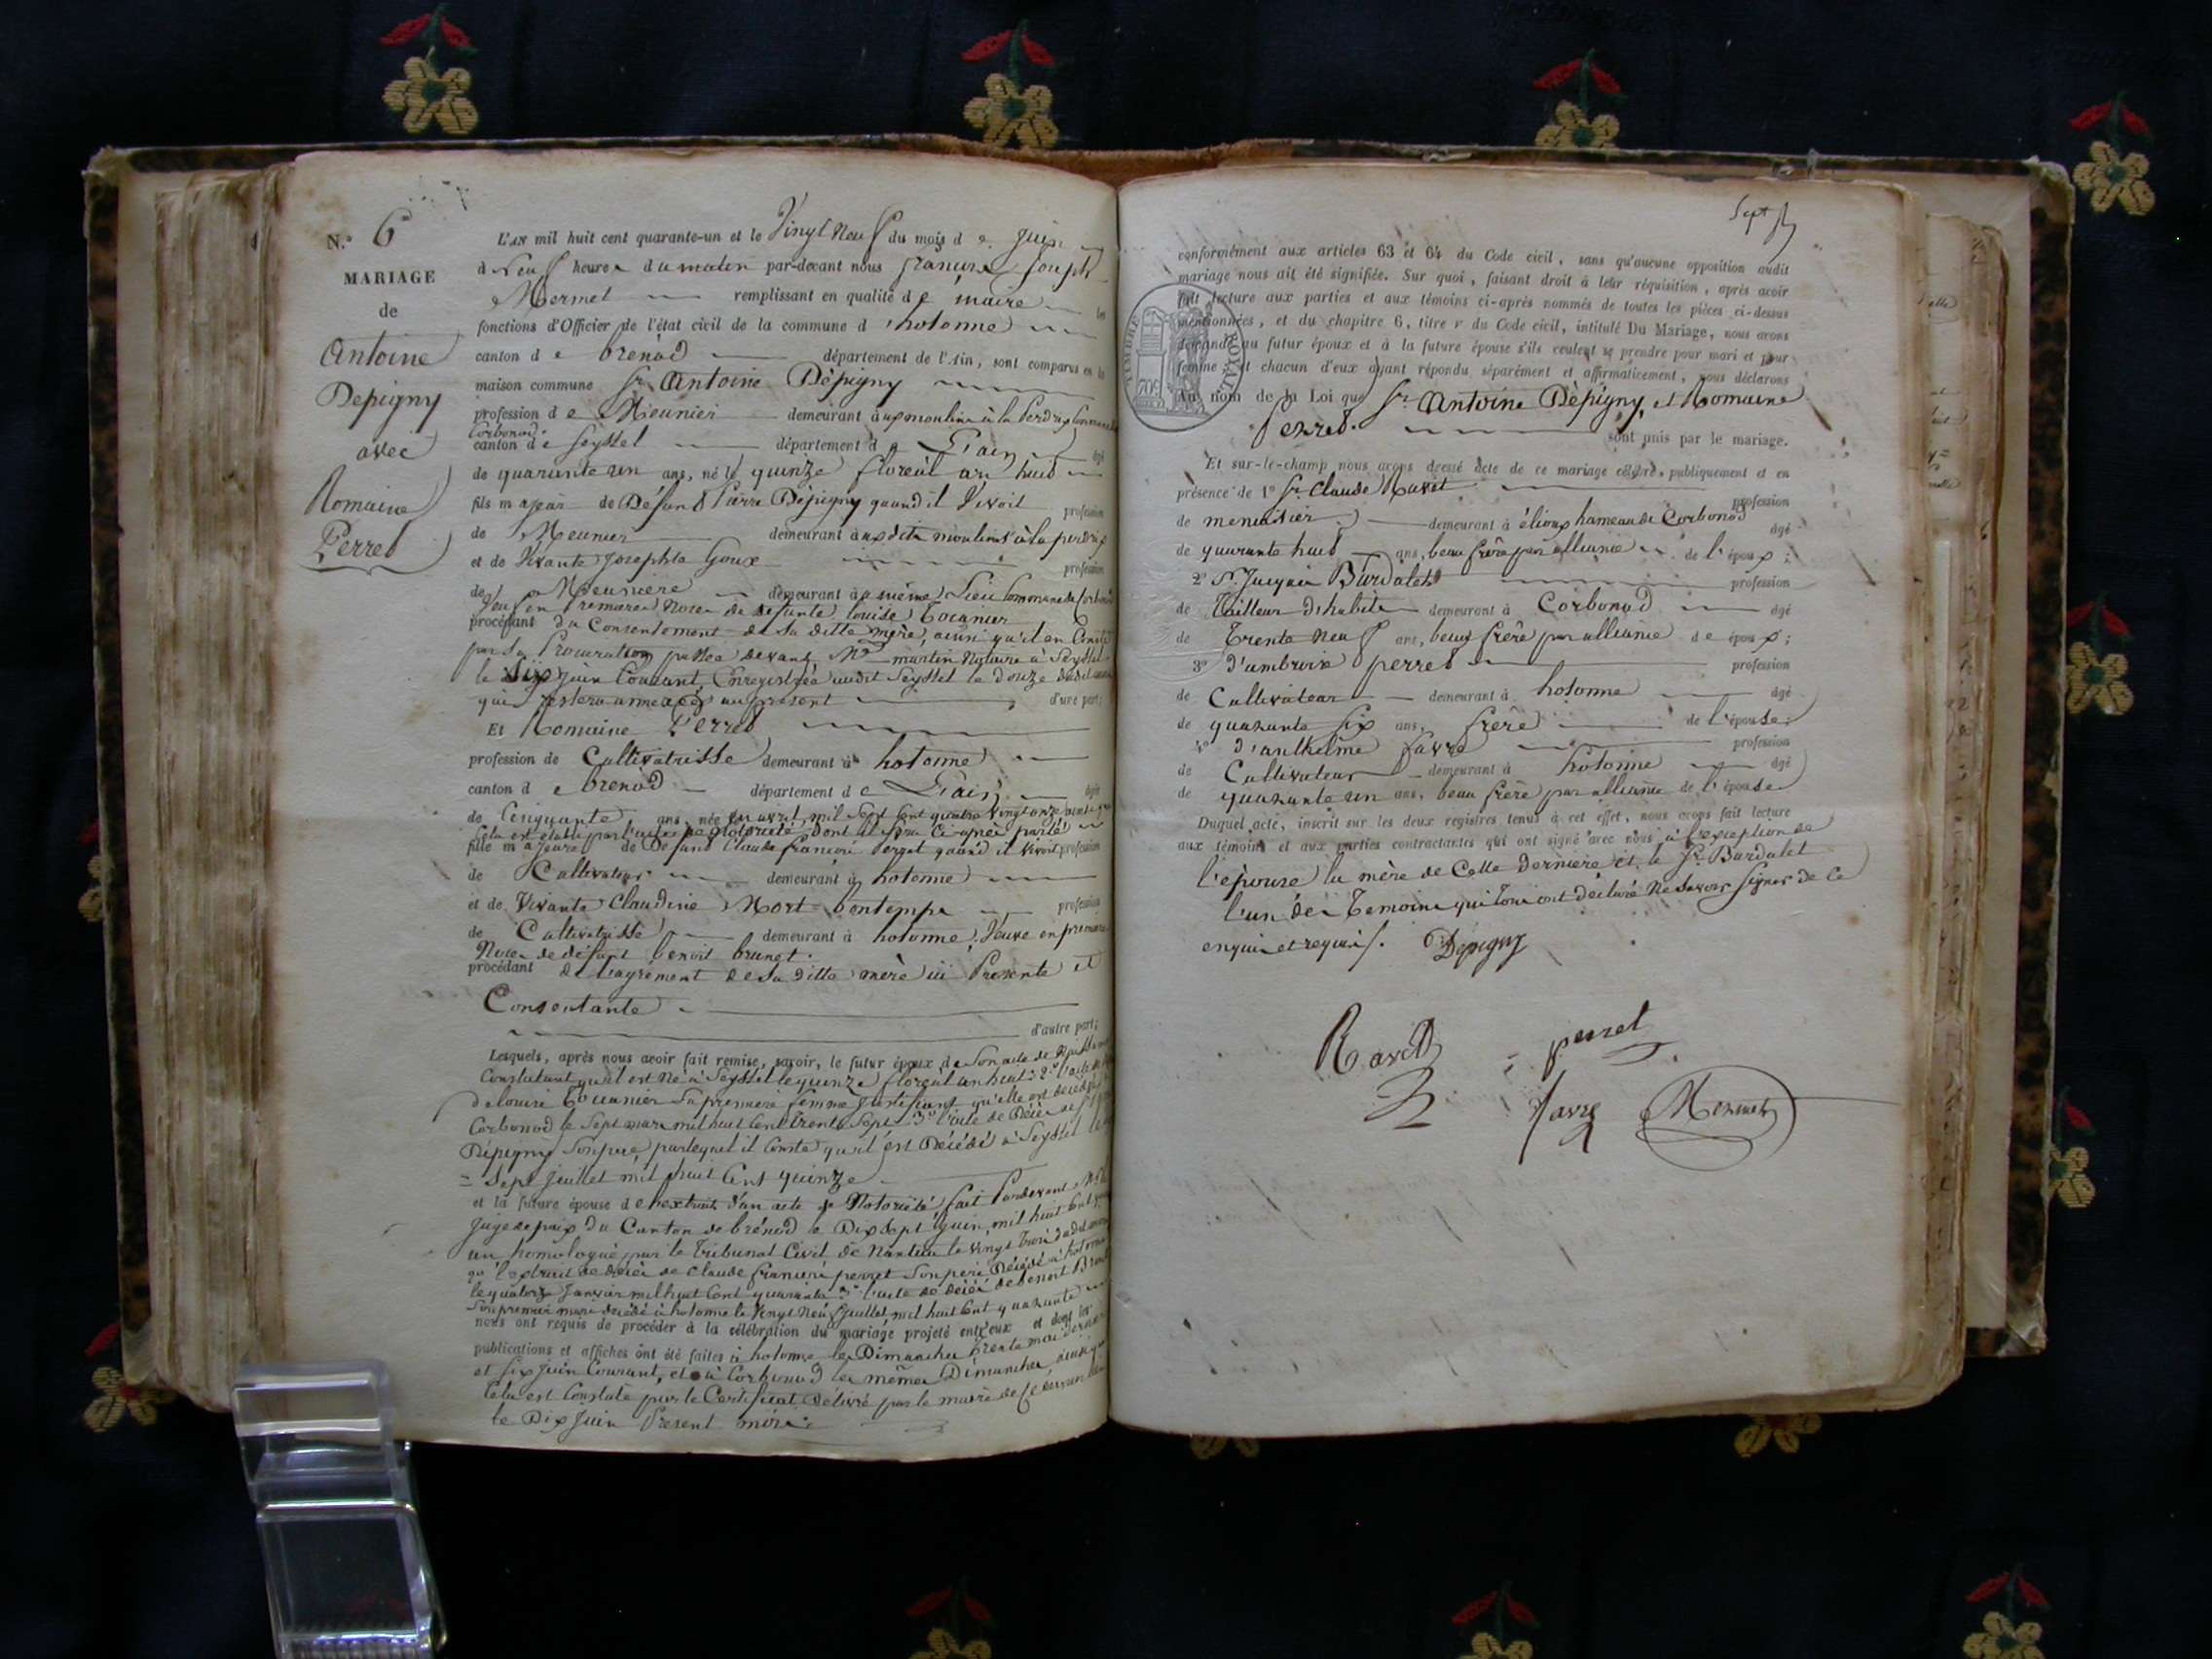 N.° 6
MARIAGE
de
Antoine
Depigny
avec
Romaine
Perret
L'AN mil huit cent quarante-un et le Vingt Neuf du mois d e Juin
à Neuf heure s du matin par-devant nous françois Joseph
Mermet remplissant en qualité d e maire les
fonctions d'Officier de l'état civil de la commune d 'hotonne
canton d e brenod département de l'Ain, sont comparus en la
maison commune Sr. Antoine Dépigny
profession d e Meunier demeurant aux moulins à la Perdrix Commune
Corbonod
canton de Seyssel département d e L'ain âgé
de quarante un ans, né le quinze floréal an huit
fils majeur de Défunt Pierre Dépigny quand il Vivoit profession
de Meunier demeurant aux dits moulins à la perdrix
et de Vivante Josephte Goux profession
de Meuniere demeurant à même Lieu Commune de Corbonod
Veuf en Premieres Noces de défunte louise Tocanier
procédant du Consentement de sa ditte mère, ainsi qu'il en Conste
par sa Procuration passée devant Me martin Notaire à Seyssel
le Dix juin Courant, Enregistrée audit Seyssel le Douze dudit
qui restera annexée au présent d'une part;
Et Romaine Perret
profession de Cultivatrisse demeurant à hotonne
canton d e brenod département d e L'ain âgée
de Cinquante ans, née en avril mil Sept Cent quatre Vingt onze ainsi que
Cela est établi par l'acte de Notorieté dont il sera Ci-après parlé
fille majeure de Défunt Claude françois Perret quand il Vivoit profession
de Cultivateur demeurant à hotonne
et de Vivante Claudine Mort bontemps profession
de Cultivatrisse demeurant à hotonne, Veuve en premieres
Noces de défunt benoit brunet.
procédant de l'agrement de sa ditte mère ici Presente et
Consentante
d'autre part;
Lesquels, après nous avoir fait remise, savoir, le futur époux de Son acte de Naissance
Constatant qu'il est Né à Seyssel le quinze floréal an huit; 2° l'acte de
de louise Tocanier Sa premiere femme Justifiant qu'elle est décédée à
Corbonod le Sept mars mil huit Cent Trente Sept 3° l'acte de Décès de
Dépigny Son pere, par lequel il Conste qu'il est Décédé à Seyssel le
Sept Juillet mil huit Cent quinze
et la future épouse de l'extrait d'un acte de Notorieté fait Pardevant Mr
Juge de paix du Canton de brénod le Dix Sept Juin, mil huit Cent quarante
un homologué par le Tribunal Civil de Nantua le Vingt Trois dudit
l'extrait de décès de Claude françois perret Son pere Décédé à hotonne
le quatorze Janvier mil huit Cent quarante 3° l'acte de décès de benoit Brunet
Son premier mari décédé à hotonne le Vingt Neuf Juillet mil huit Cent quarante
nous ont requis de procéder à la célébration du mariage projeté entr'eux et dont les
publications et affiches ont été faites à hotonne les Dimanches trente mai dernier
et Six juin Courant, et à Corbonod les mêmes Dimanches ainsi que
Cela est Constaté par le Certificat Délivré par le maire de Ce dernier lieu
le Dix Juin Present mois
Sept
conformément aux articles 63 et 64 du Code civil, sans qu'aucune opposition audit
mariage nous ait été signifiée. Sur quoi, faisant droit à leur réquisition, après avoir
fait lecture aux parties et aux témoins ci-après nommés de toutes les pièces ci-dessus
mentionnées, et du chapitre 6, titre v du Code civil, intitulé Du Mariage, nous avons
demandé au futur époux et à la future épouse s'ils veulent se prendre pour mari et pour
femme; et chacun d'eux ayant répondu séparément et affirmativement, nous déclarons
Au nom de la Loi que Sr. Antoine Dépigny, et Romaine
Perret. sont unis par le mariage.
TIMBRE ROYAL
70c
Et sur-le-champ nous avons dressé acte de ce mariage célébré publiquement et en
présence de 1° Sr. Claude Ravet profession
de menuisier demeurant à élioux hameau de Corbonod âgé
de quarante huit ans, beau frère par alliance de l'époux;
2° Sr. Jacques Burdalet profession
de Tailleur d'habits demeurant à Corbonod âgé
de Trente Neuf ans, beau frère par alliance de époux;
3° d'ambroix perret profession
de Cultivateur demeurant à hotonne âgé
de quarante Six ans, frère de l'épouse;
4° d'anthelme favre profession
de Cultivateur demeurant à hotonne âgé
de quarante un ans, beau frère par alliance de l'épouse
Duquel acte, inscrit sur les deux registres tenus à cet effet, nous avons fait lecture
aux témoins et aux parties contractantes qui ont signé avec nous à l'exception de
l'épouse la mère de Cette Derniere et le Sr. Burdalet
l'un des Temoins qui tous ont déclaré Ne Savoir Signer de Ce
enquis et requis.
Dépigny
Ravet
perret
favre
Mermet